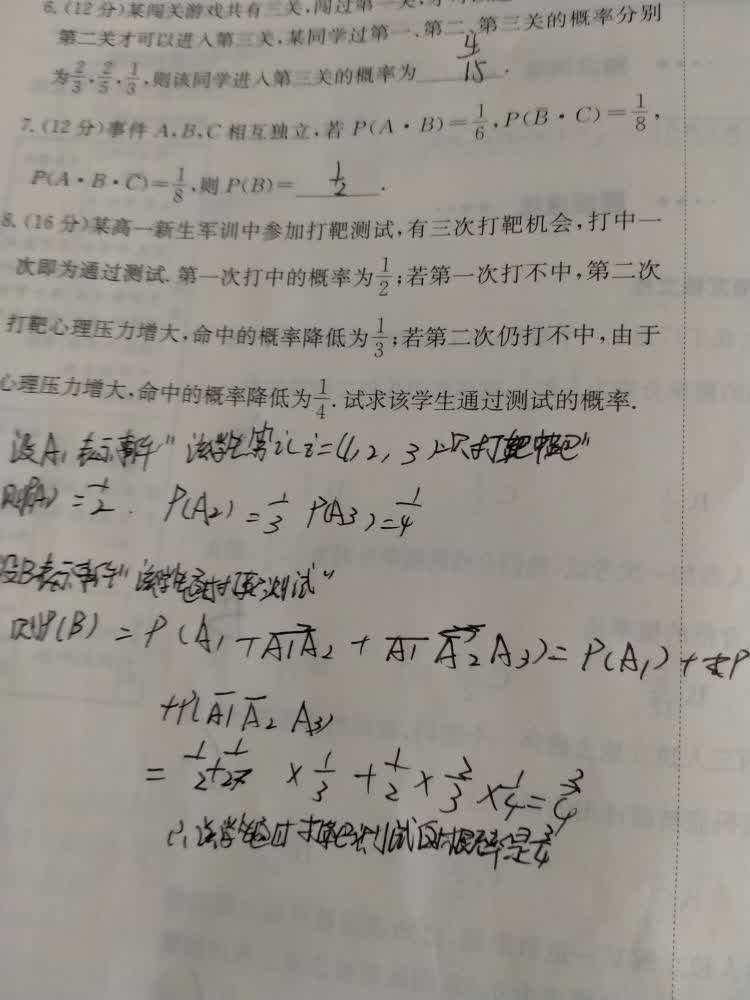 6.(12分)某闯关游戏共有三关,闯过第一关,才可以
第二关才可以进入第三关,某同学过第一、第二、第三关的概率分别
为2/3,2/5,1/3,则该同学进入第三关的概率为 4/15 .
7.(12分)事件A,B,C相互独立,若P(A·B)=1/6,P(B̄·C)=1/8,
P(A·B·C̄)=1/8,则P(B)= 1/2 .
8.(16分)某高一新生军训中参加打靶测试,有三次打靶机会,打中一
次即为通过测试.第一次打中的概率为1/2;若第一次打不中,第二次
打靶心理压力增大,命中的概率降低为1/3;若第二次仍打不中,由于
心理压力增大,命中的概率降低为1/4.试求该学生通过测试的概率.
设Ai表示事件"该学生第i(i=1,2,3)次打靶中靶"
则P(A1)=1/2. P(A2)=1/3 P(A3)=1/4
设B表示事件"该学生通过打靶测试"
则P(B)=P(A1+Ā1A2+Ā1Ā2A3)=P(A1)+P
+P(Ā1Ā2A3)
=1/2+1/2×1/3+1/2×2/3×1/4=3/4
∴该学生通过打靶测试的概率是3/4